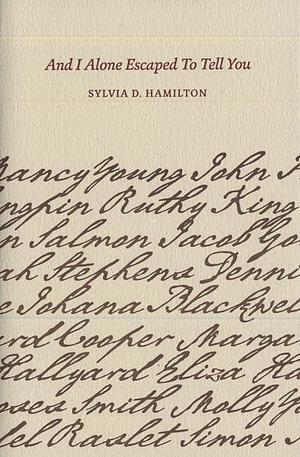 And I Alone Escaped To Tell You
SYLVIA D. HAMILTON
Nancy Young John
Ruthy King
Salmon Jacob Go
ah Stephens Denni
e Johana Blackwel
ard Cooper Marga
Hallyard Eliza Ha
oses Smith Molly Y
del Raslet Simon